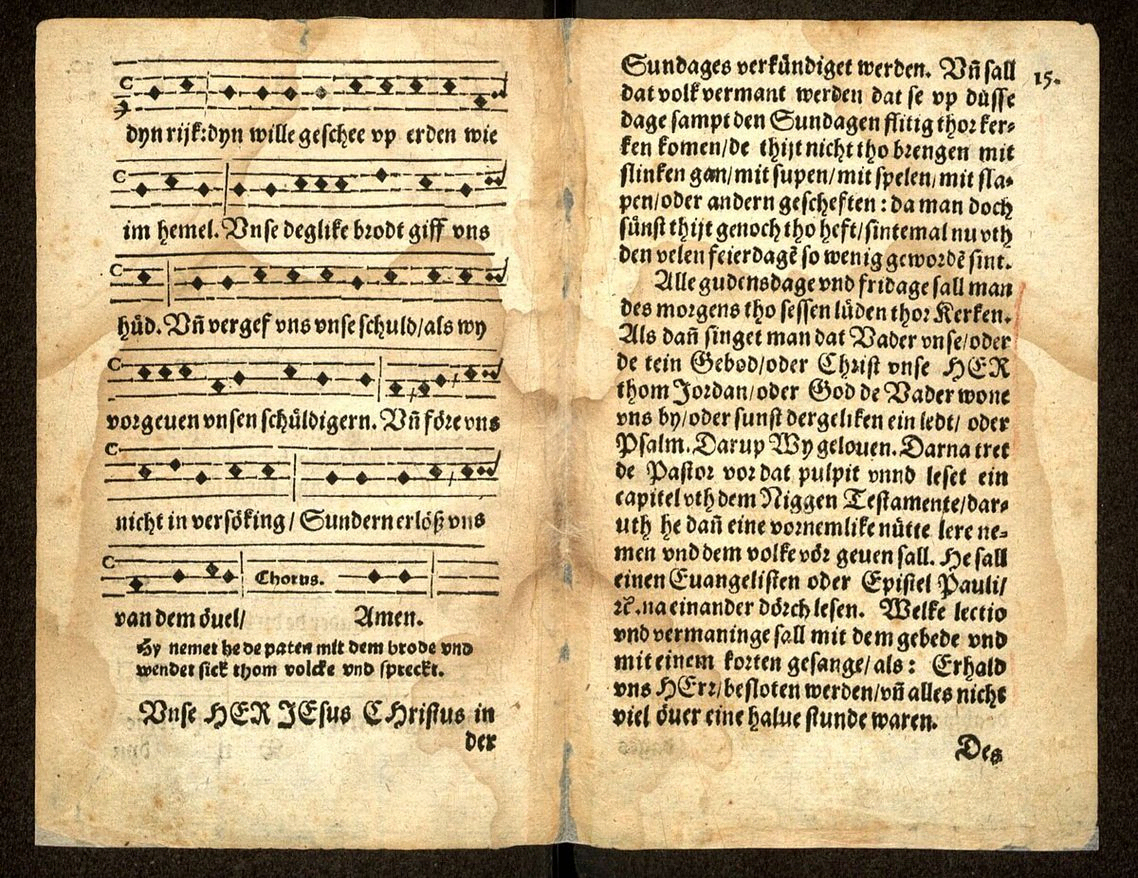 dyn rijk: dyn wille geschee vp erden wie
im hemel. Vnse deglike brodt giff vns
hüd. Vñ vergef vns vnse schuld/als wy
vorgeuen vnsen schüldigern. Vñ före vns
nicht in versöking/ Sundern erlöß vns
Chorus.
van dem öuel/ Amen.
Hy nemet he de paten mit dem brode vnd
wendet sick thom volcke vnd spreckt.
Vnse HER JEsus CHristus in
der
15.
Sundages verkündiget werden. Vñ sall
dat volk vermant werden dat se vp düsse
dage sampt den Sundagen flitig thor ker-
ken komen/de thijt nicht tho brengen mit
slinken gan/mit supen/mit spelen/mit sla-
pen/oder andern gescheften: da man doch
sünst thijt genoch tho heft/sintemal nu vth
den velen feierdagẽ so wenig gewordẽ sint.
Alle gudensdage vnd fridage sall man
des morgens tho sessen lüden thor Kerken.
Als dañ singet man dat Vader vnse/oder
de tein Gebod/oder Christ vnse HER
thom Jordan/oder God de Vader wone
vns by/oder sunst dergeliken ein ledt/ oder
Psalm. Darup Wy gelouen. Darna tret
de Pastor vor dat pulpit vnnd leset ein
capitel vth dem Niggen Testamente/dar-
uth he dañ eine vornemlike nütte lere ne-
men vnd dem volke vör geuen sall. He sall
einen Euangelisten oder Epistel Pauli/
ꝛc̃. na einander dörch lesen. Welke lectio
vnd vermaninge sall mit dem gebede vnd
mit einem korten gesange/als: Erhald
vns HErr/besloten werden/vñ alles nicht
viel öuer eine halue stunde waren.
Des